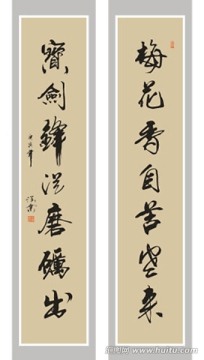 寶劍鋒從磨礪出
梅花香自苦寒來
www.huitu.com